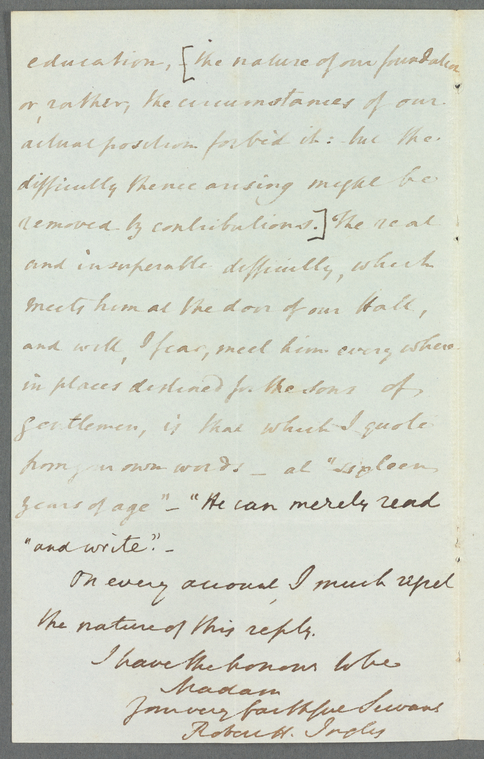 education, [the nature of our foundation
or, rather, the circumstances of our
actual position forbid it: but the
difficulty thence arising might be
removed by contributions.] The real
and insuperable difficulty, which
meets him at the door of our Hall,
and will, I fear, meet him every where
in places destined for the sons of
gentlemen, is that which I quote
from your own words — at "sixteen
years of age" — "He can merely read
"and write". —
On every account, I much regret
the nature of this reply.
I have the honour to be
Madam
Your very faithful Servant
Robert H. Inglis